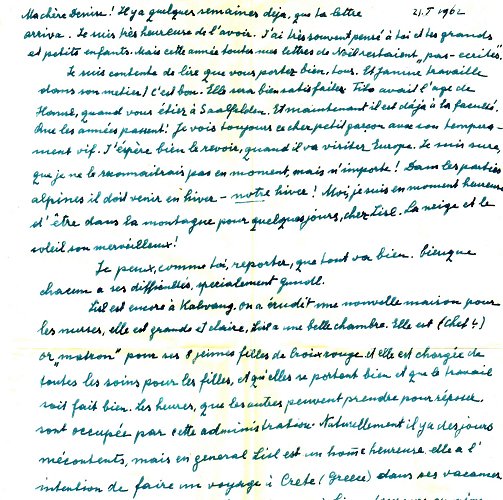 Ma chère Denise! Il y a quelques semaines déja, que ta lettre 21.I 1962
arriva. Je suis très heureuse de l'avoir. J'ai très souvent pensé à toi et tes grands
et petits enfants. Mais cette année toutes mes lettres de Noël restaient "pas-ecrites".
Je suis contente de lire que vous portez bien, tous. Et Janine travaille
dans son metier! c'est bon. Elle sera bien satisfaite. Tito avait l'age de
quand vous étiez à Saalfelden. Et maintenant il est déjà à la faculté.
Que les années passent! Je vois toujours ce cher petit garçon avec son tempera-
ment vif. J'éspère bien le revoir, quand il va visiter Europe. Je suis sure,
que je ne le reconnaitrais pas en moment, mais n'importe! Dans les parties
alpines il doit venir en hiver - notre hiver! Moi, je suis en moment heureuse
d'être dans la montagne pour quelques jours, chez Lisl. La neige et le
soleil son merveilleux!
Je peux, comme toi, reporter, que tout va bien. bien que
chacun a ses difficultés, specialement Gundl.
Lisl est encore à Kalwang. on a érudit une nouvelle maison pour
les nurses, elle est grande et claire, Lisl a une belle chambre. Elle est (Chef
or "matron" pour ses 8 jeunes filles de Croix rouge et elle est chargée de
toutes les soins pour les filles, et qu'elles se portent bien et que le travail
soit fait bien. Les heures, que les autres peuvent prendre pour réposer,
sont occupée par cette administration. Naturellement il y a des jours
mécontents, mais en general Lisl est un homme heureuse. elle a l'
intention de faire un voyage à Crete (Greece) dans ses vacances